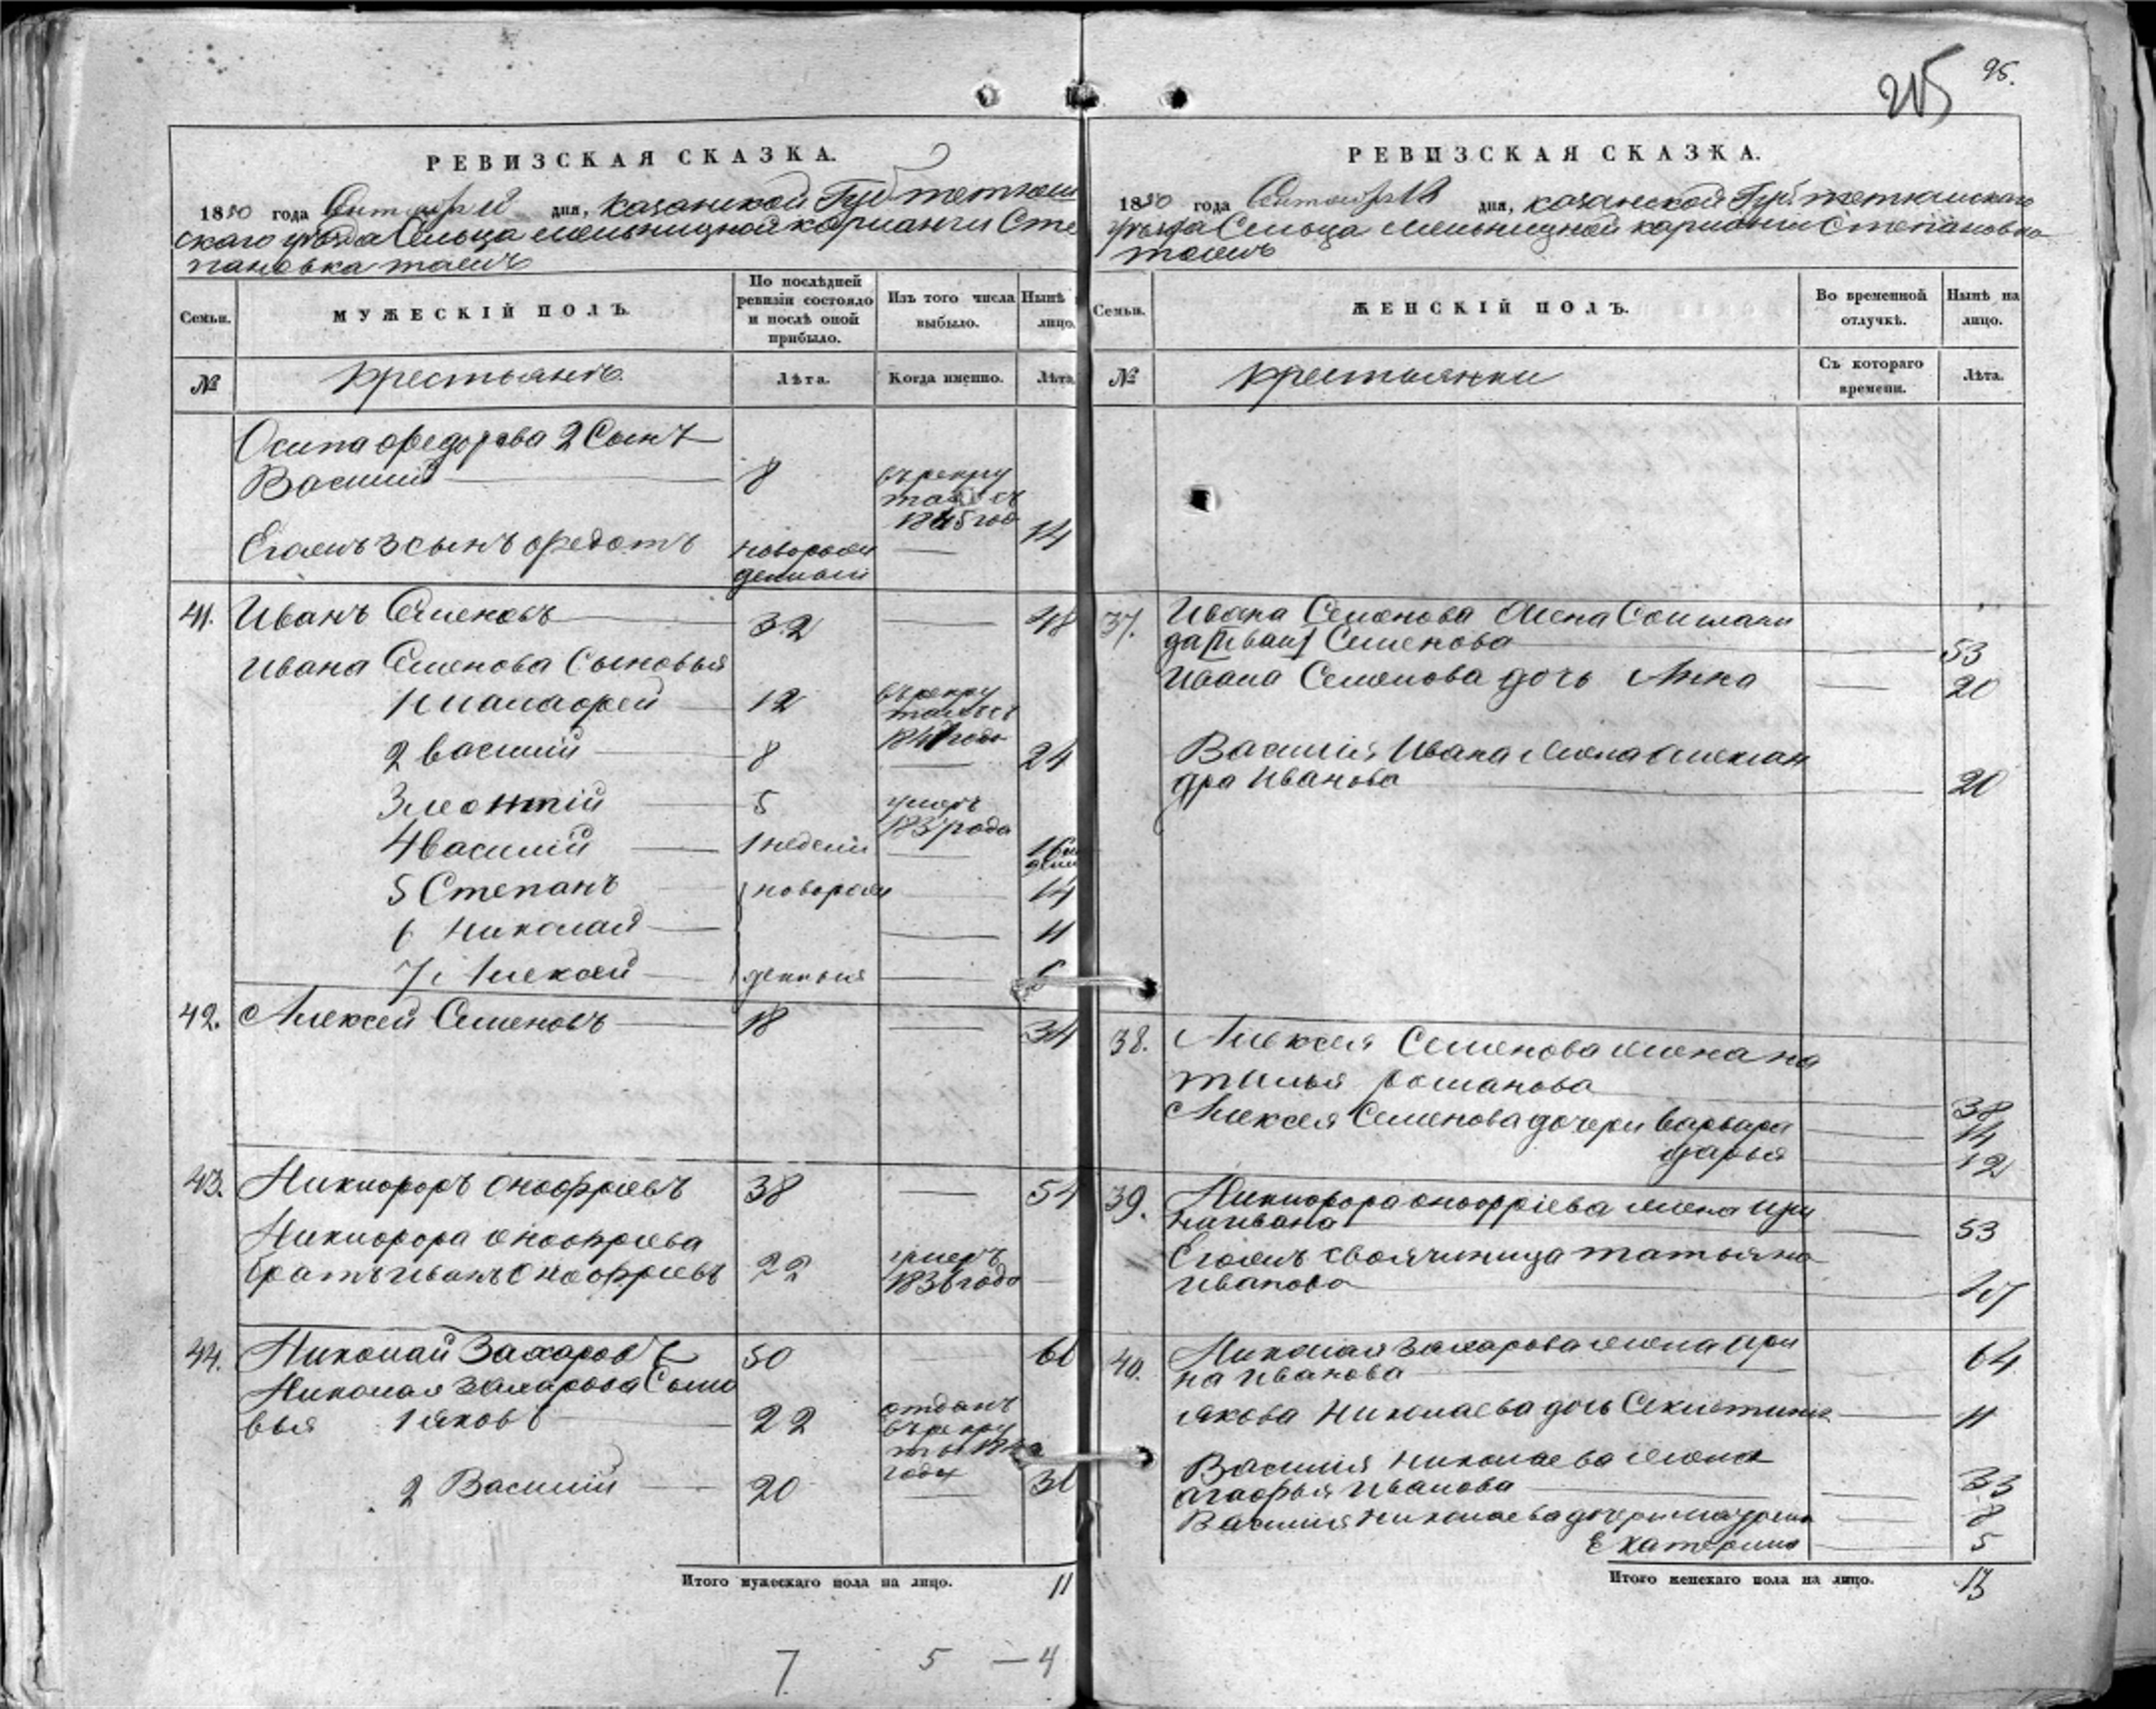 215 95.
РЕВИЗСКАЯ СКАЗКА.
1850 года дня, Казанской Губ Тетюш
скаго уѣзда Сельца Мельничной Кармалки Сте
пановка тожъ
Семьи.
МУЖЕСКІЙ ПОЛЪ.
По послѣдней ревизіи состояло и послѣ оной прибыло.
Изъ того числа выбыло.
Нынѣ лицо.
№
крестьянъ
Лѣта.
Когда именно.
Лѣта
Осипа Федорова 2 Сынъ
Василий 8 въ рекру
1845 год
Егожъ 3 сынъ Федотъ новорож 14
денный
41. Иванъ Семеновъ 32 48
Ивана Семенова Сыновья
1 12 въ рекру
2 Василий 8 24
3 Леонтій 5 умеръ
1837 года
4 Василий 1 недели 16
5 Степанъ новорож 14
6 Николай 11
7 Алексей денныя 6
42. Алексей Семеновъ 18 34
43. Никифоръ Онофриевъ 38 54
Никифора Онофриева
братъ Иванъ Онофриевъ 22 умеръ
1836 года
44. Николай Захаровъ 50 66
Николая Захарова Сыно
вья 1 Яковъ 22 отданъ
въ рекру
года
2 Василий 20 36
Итого мужескаго пола на лицо. 11
7 5 — 4
РЕВИЗСКАЯ СКАЗКА.
1850 года дня, Казанской Губ. Тетюшскаго
уѣзда Сельца Мельничной Кармалки Степановка
тожъ
Семьи.
ЖЕНСКІЙ ПОЛЪ.
Во временной отлучкѣ.
Нынѣ на лицо.
№
крестьянки
Съ котораго времени.
Лѣта.
37. Ивана Семенова жена
Семенова 53
Ивана Семенова дочь Анна 20
Василия Ивана жена Алексан
дра Иванова 20
38. Алексея Семенова жена На
талья Романова 38
Алексея Семенова дочери Варвара 14
Дарья 12
39. Никифора Онофріева жена Ири
на Ивана 53
Егожъ своячиница Татьяна
Иванова
40. Николая Захарова жена Ири 64
на Иванова
Якова Николаева дочь 11
Василия Николаева жена
Агафья Иванова 33
Василия Николаева дочери 8
Екатерина 5
Итого женскаго пола на лицо. 13